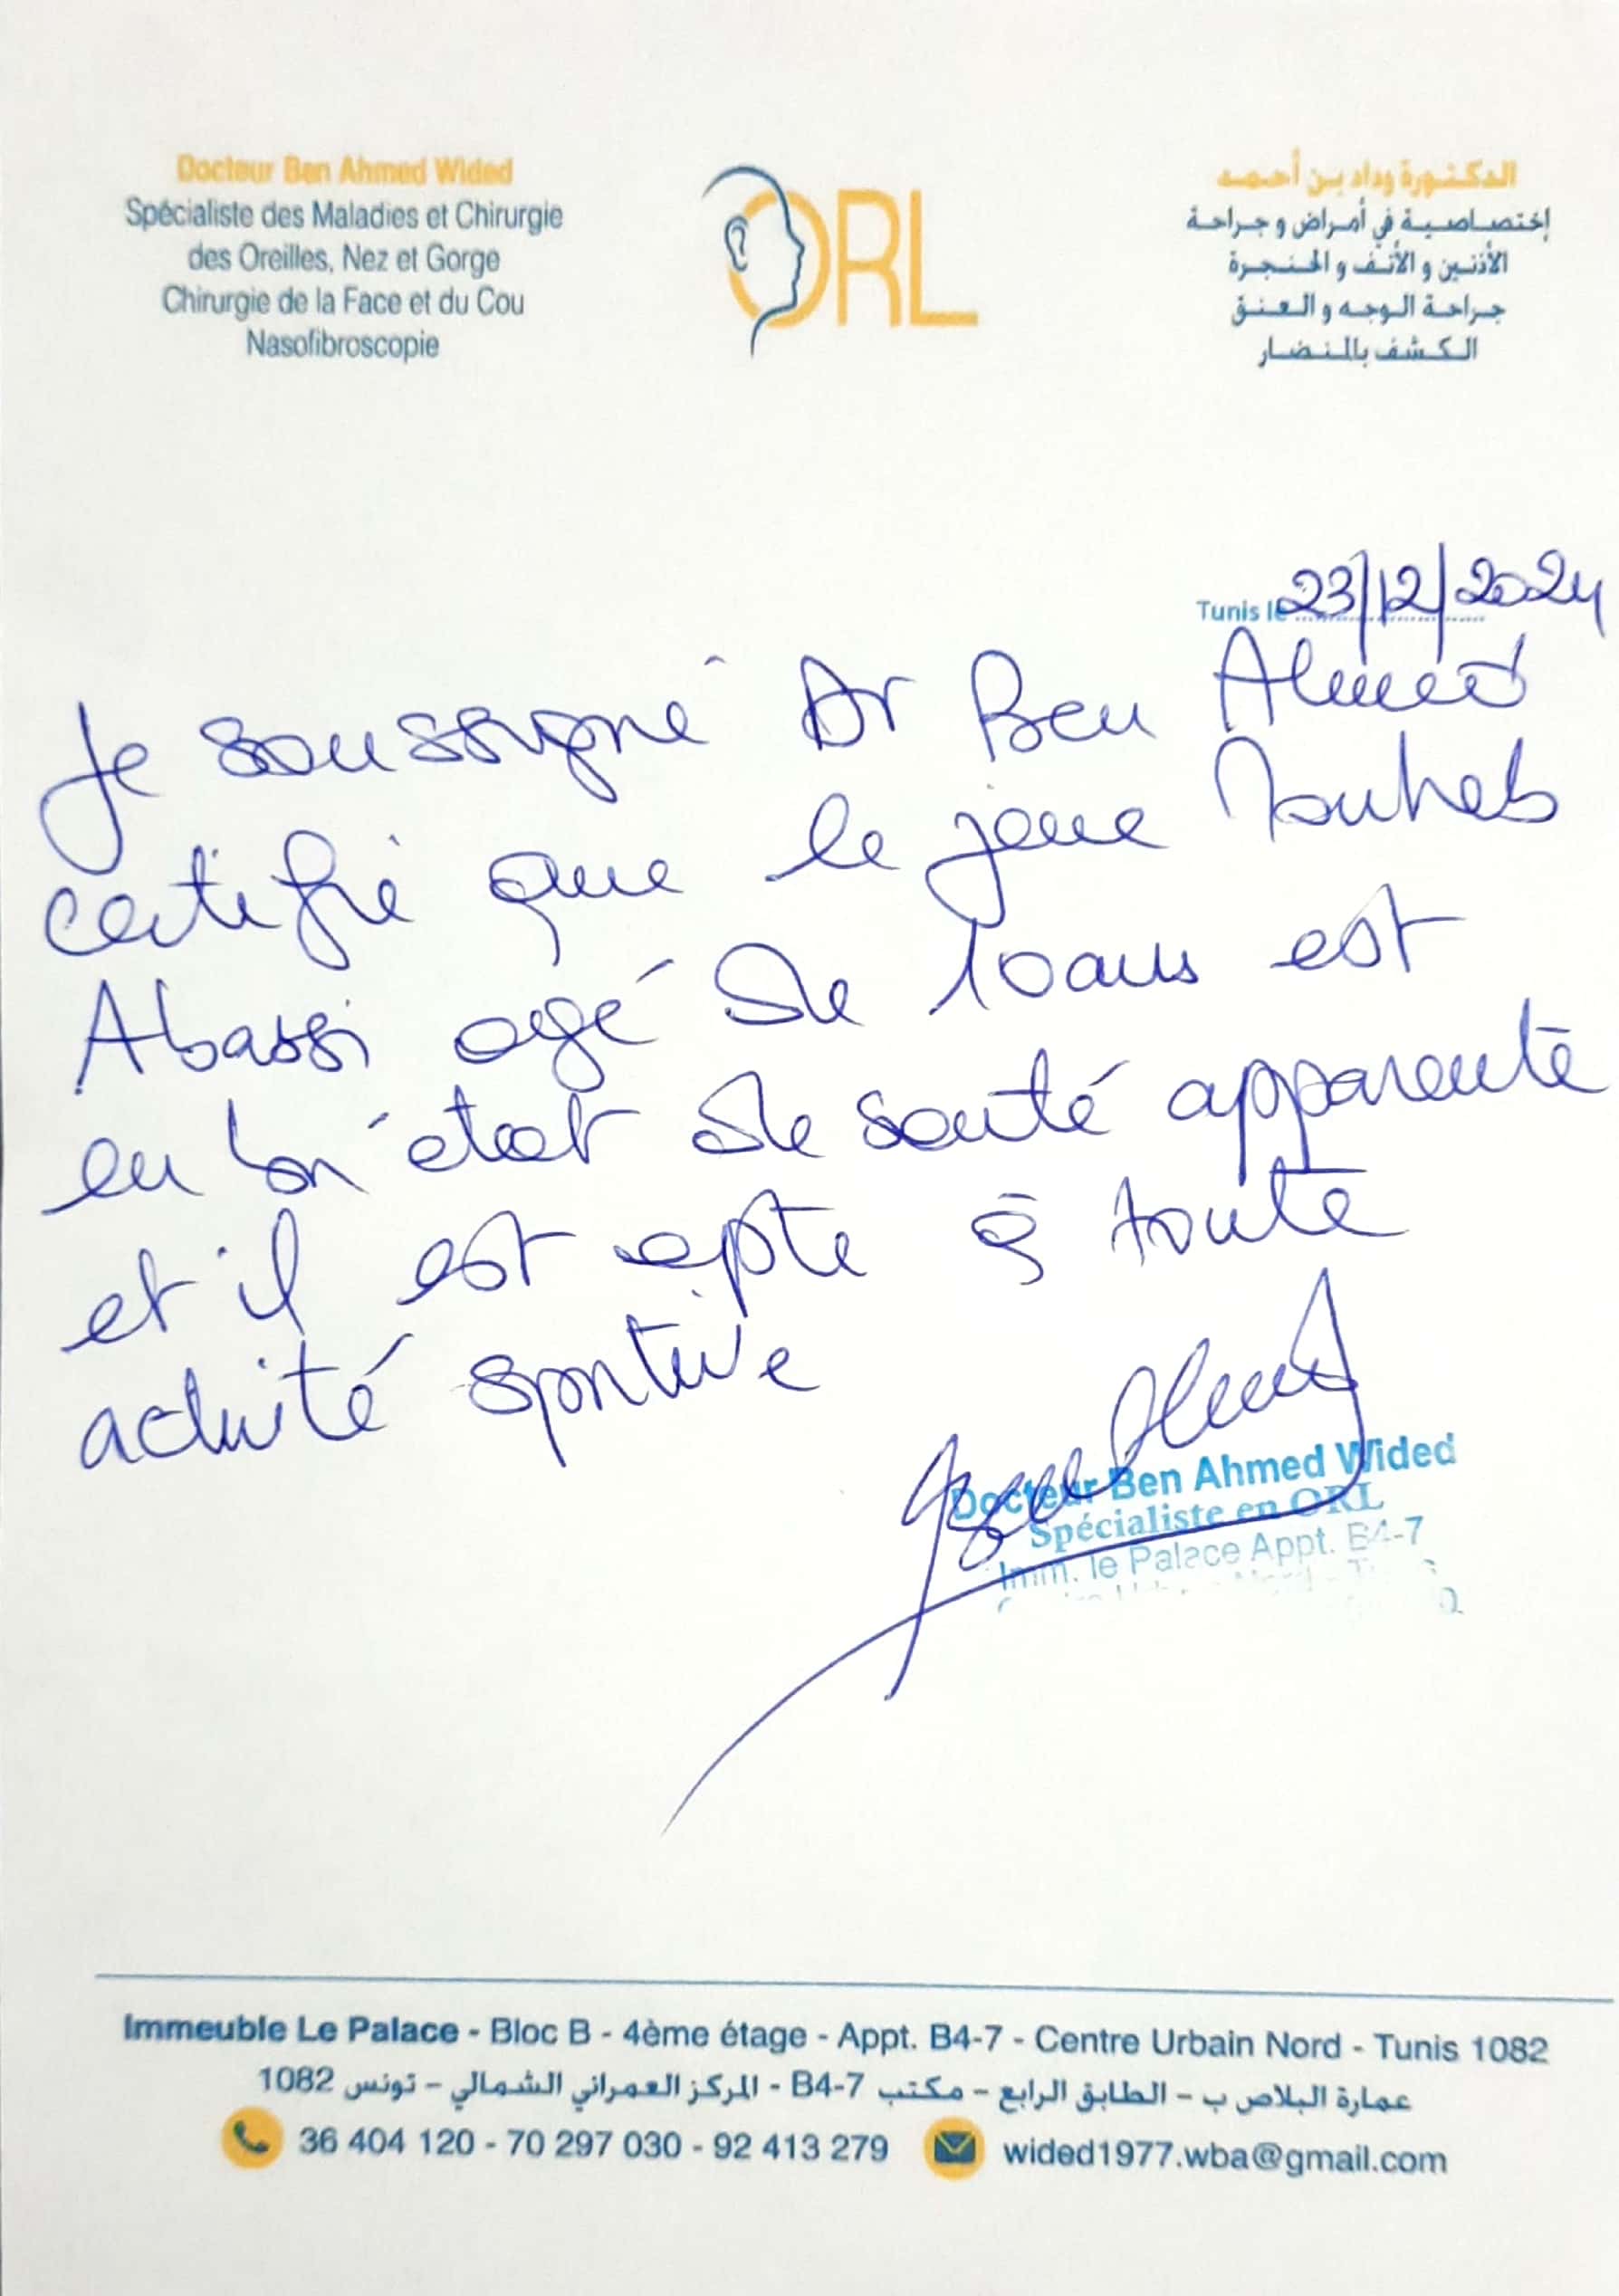 Docteur Ben Ahmed Wided
Spécialiste des Maladies et Chirurgie
des Oreilles, Nez et Gorge
Chirurgie de la Face et du Cou
Nasofibroscopie
ORL
الدكتورة وداد بن أحمد
إختصاصية في أمراض و جراحة
الأذنين و الأنف و الحنجرة
جراحة الوجه و العنق
الكشف بالمنضار
Tunis le 23/12/2024
Je soussigné Dr Ben Ahmed
certifie que le jeune
Abassi agé de 10 ans est
en bon état de santé apparente
et il est apte à toute
activité sportive
Docteur Ben Ahmed Wided
Spécialiste en ORL
Imm. le Palace Appt. B4-7
Immeuble Le Palace - Bloc B - 4ème étage - Appt. B4-7 - Centre Urbain Nord - Tunis 1082
عمارة البلاص ب – الطابق الرابع – مكتب B4-7 - المركز العمراني الشمالي – تونس 1082
36 404 120 - 70 297 030 - 92 413 279 wided1977.wba@gmail.com